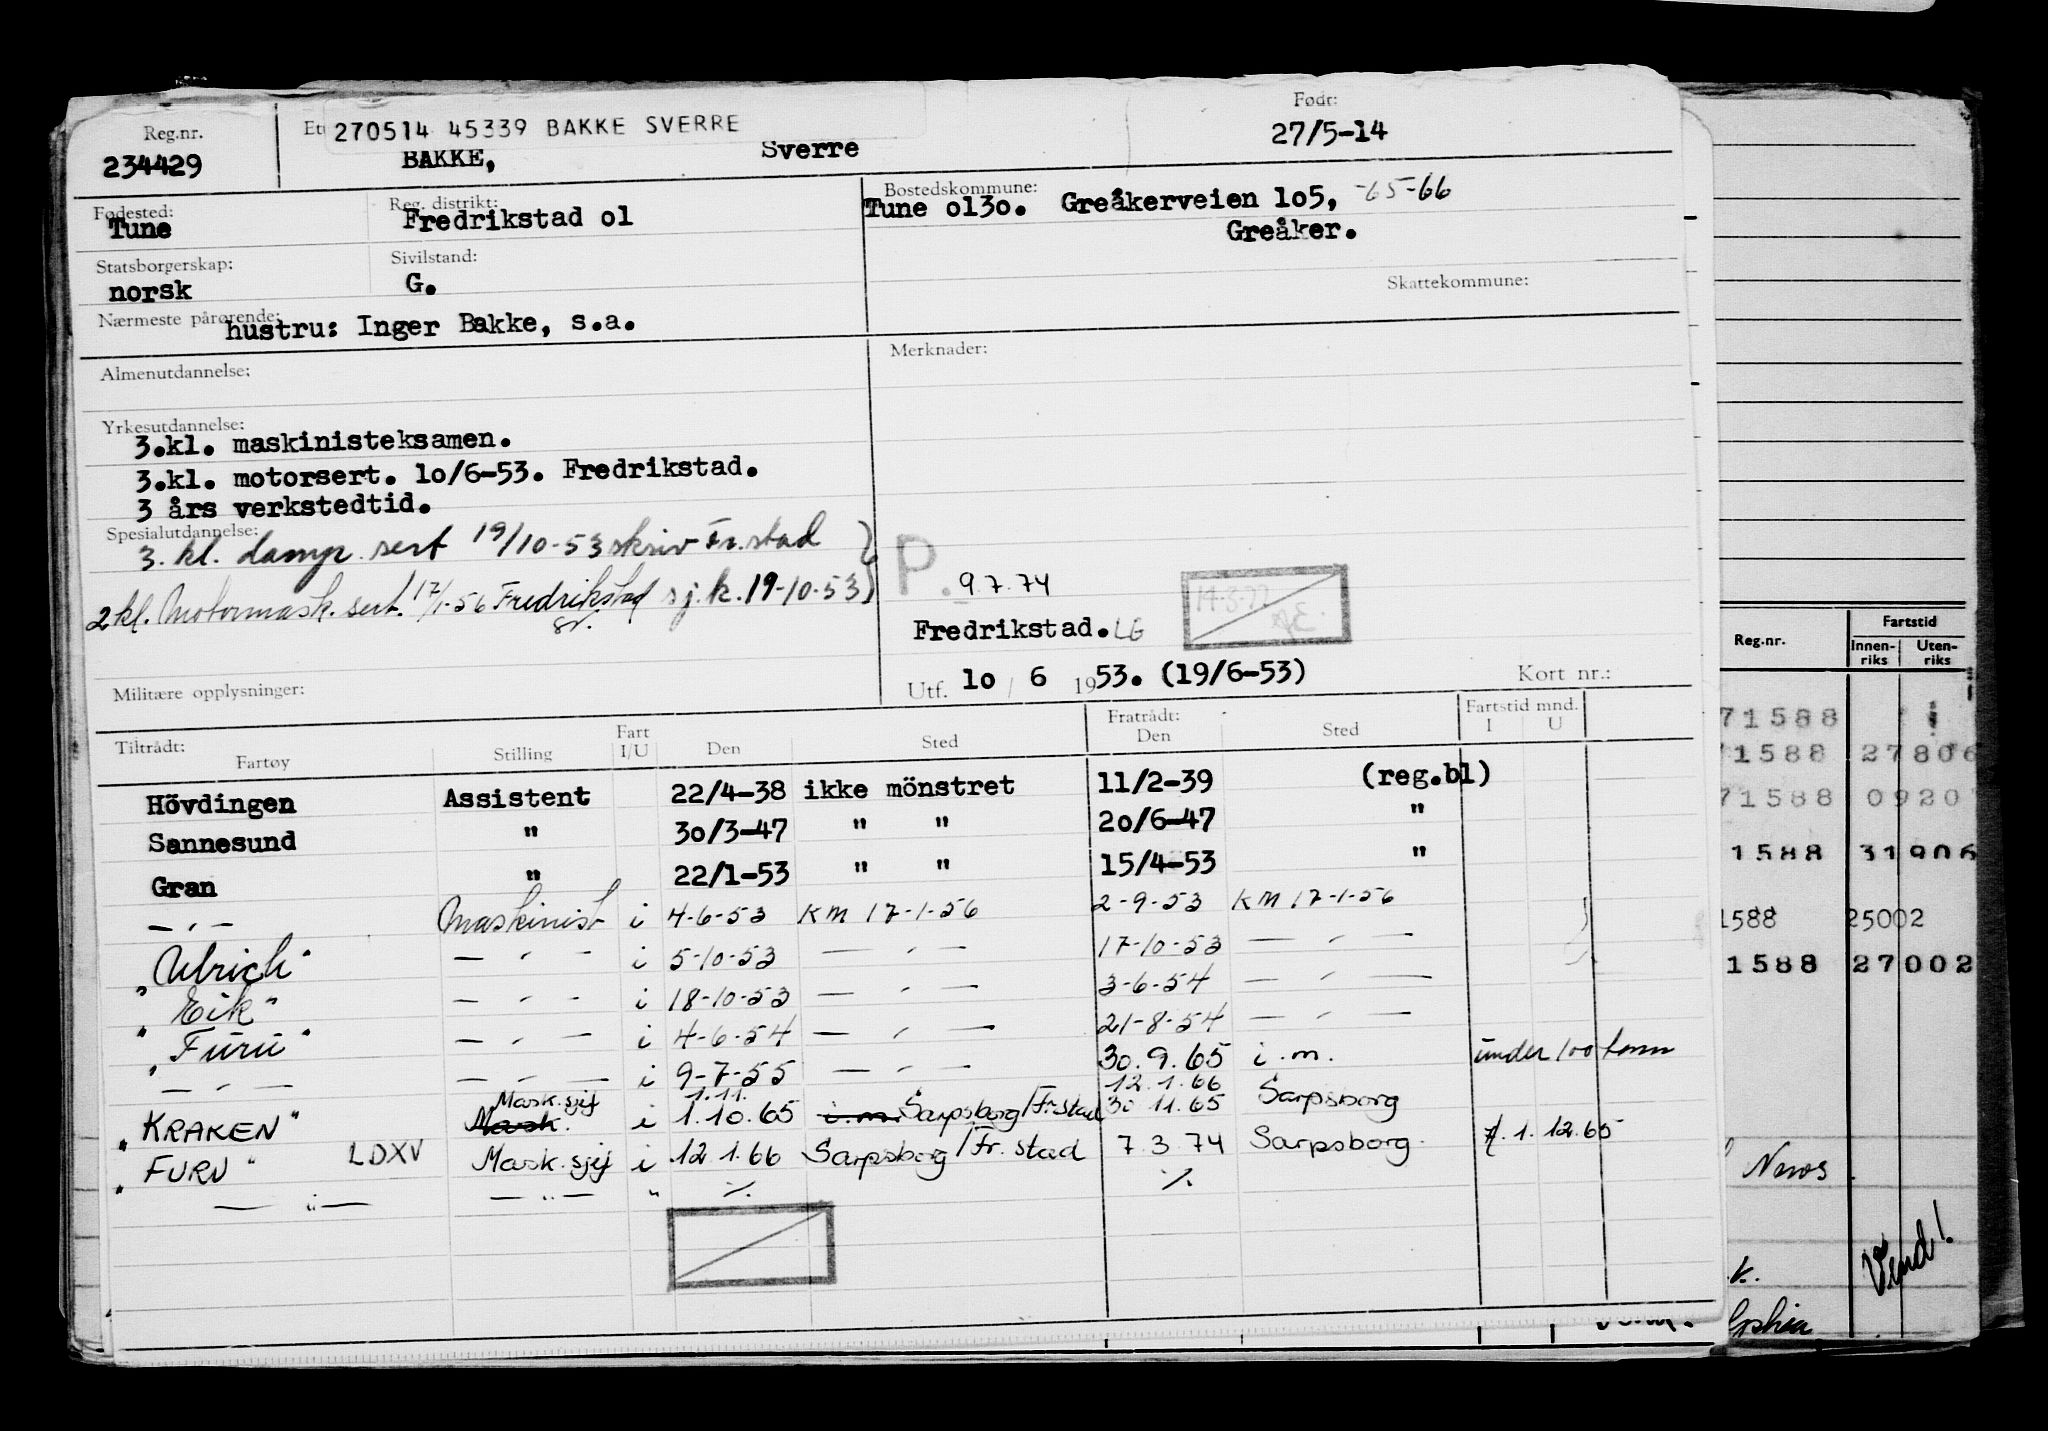 Reg.nr. Et 270514 45339 BAKKE SVERRE Født:
234429 BAKKE, Sverre 27/5-14
Fødested: Reg. distrikt: Bostedskommune:
Tune Fredrikstad ol Tune ol3o. Greåkerveien lo5, -65-66
Greåker.
Statsborgerskap: Sivilstand: Skattekommune:
norsk G.
Nærmeste pårørende:
hustru: Inger Bakke, s.a.
Almenutdannelse: Merknader:
Yrkesutdannelse:
3.kl. maskinisteksamen.
3.kl. motorsert. lo/6-53. Fredrikstad.
3 års verkstedtid.
Spesialutdannelse:
3. kl. damp. sert 19/10-53 skriv Fr.stad
2 kl. Motormask. sert. 17/1-56 Fredrikstad sj.k. 19-10-53
P. 9.7.74
Fredrikstad. LG
Militære opplysninger: Utf. lo / 6 1953. (19/6-53) Kort nr.:
Tiltrådt: Fratrådt: Fartstid mnd.
Fartøy Stilling Fart I/U Den Sted Den Sted I U
Hövdingen Assistent 22/4-38 ikke mönstret 11/2-39 (reg.bl)
Sannesund " 3o/3-47 " " 2o/6-47 "
Gran " 22/1-53 " " 15/4-53 "
— " — Maskinist i 4-6-53 KM 17-1-56 2-9-53 KM 17-1-56
"Ulrich" — " — i 5-10-53 — " — 17-10-53 — " —
"Eik" — " — i 18-10-53 — " — 3-6-54 — " —
"Furu" — " — i 4-6-54 — " — 21-8-54 — " —
— " — — " — i 9-7-55 — " — 30.9.65 i.m. under 100 tonn
Mask.sjef 1.11. 12.1.66
"KRAKEN" Mask. i 1.10.65 i.m. Sarpsborg/Fr.stad 30.11.65 Sarpsborg
"FURU" LDXV Mask.sjef i 12.1.66 Sarpsborg/Fr.stad 7.3.74 Sarpsborg. 1.12.65
— " — — " — " ⁒ ⁒
Reg.nr. Fartstid
Innen-riks Uten-riks
71588
1588 27806
71588 0920
1588 31906
1588 25002
1588 27002
Vend!